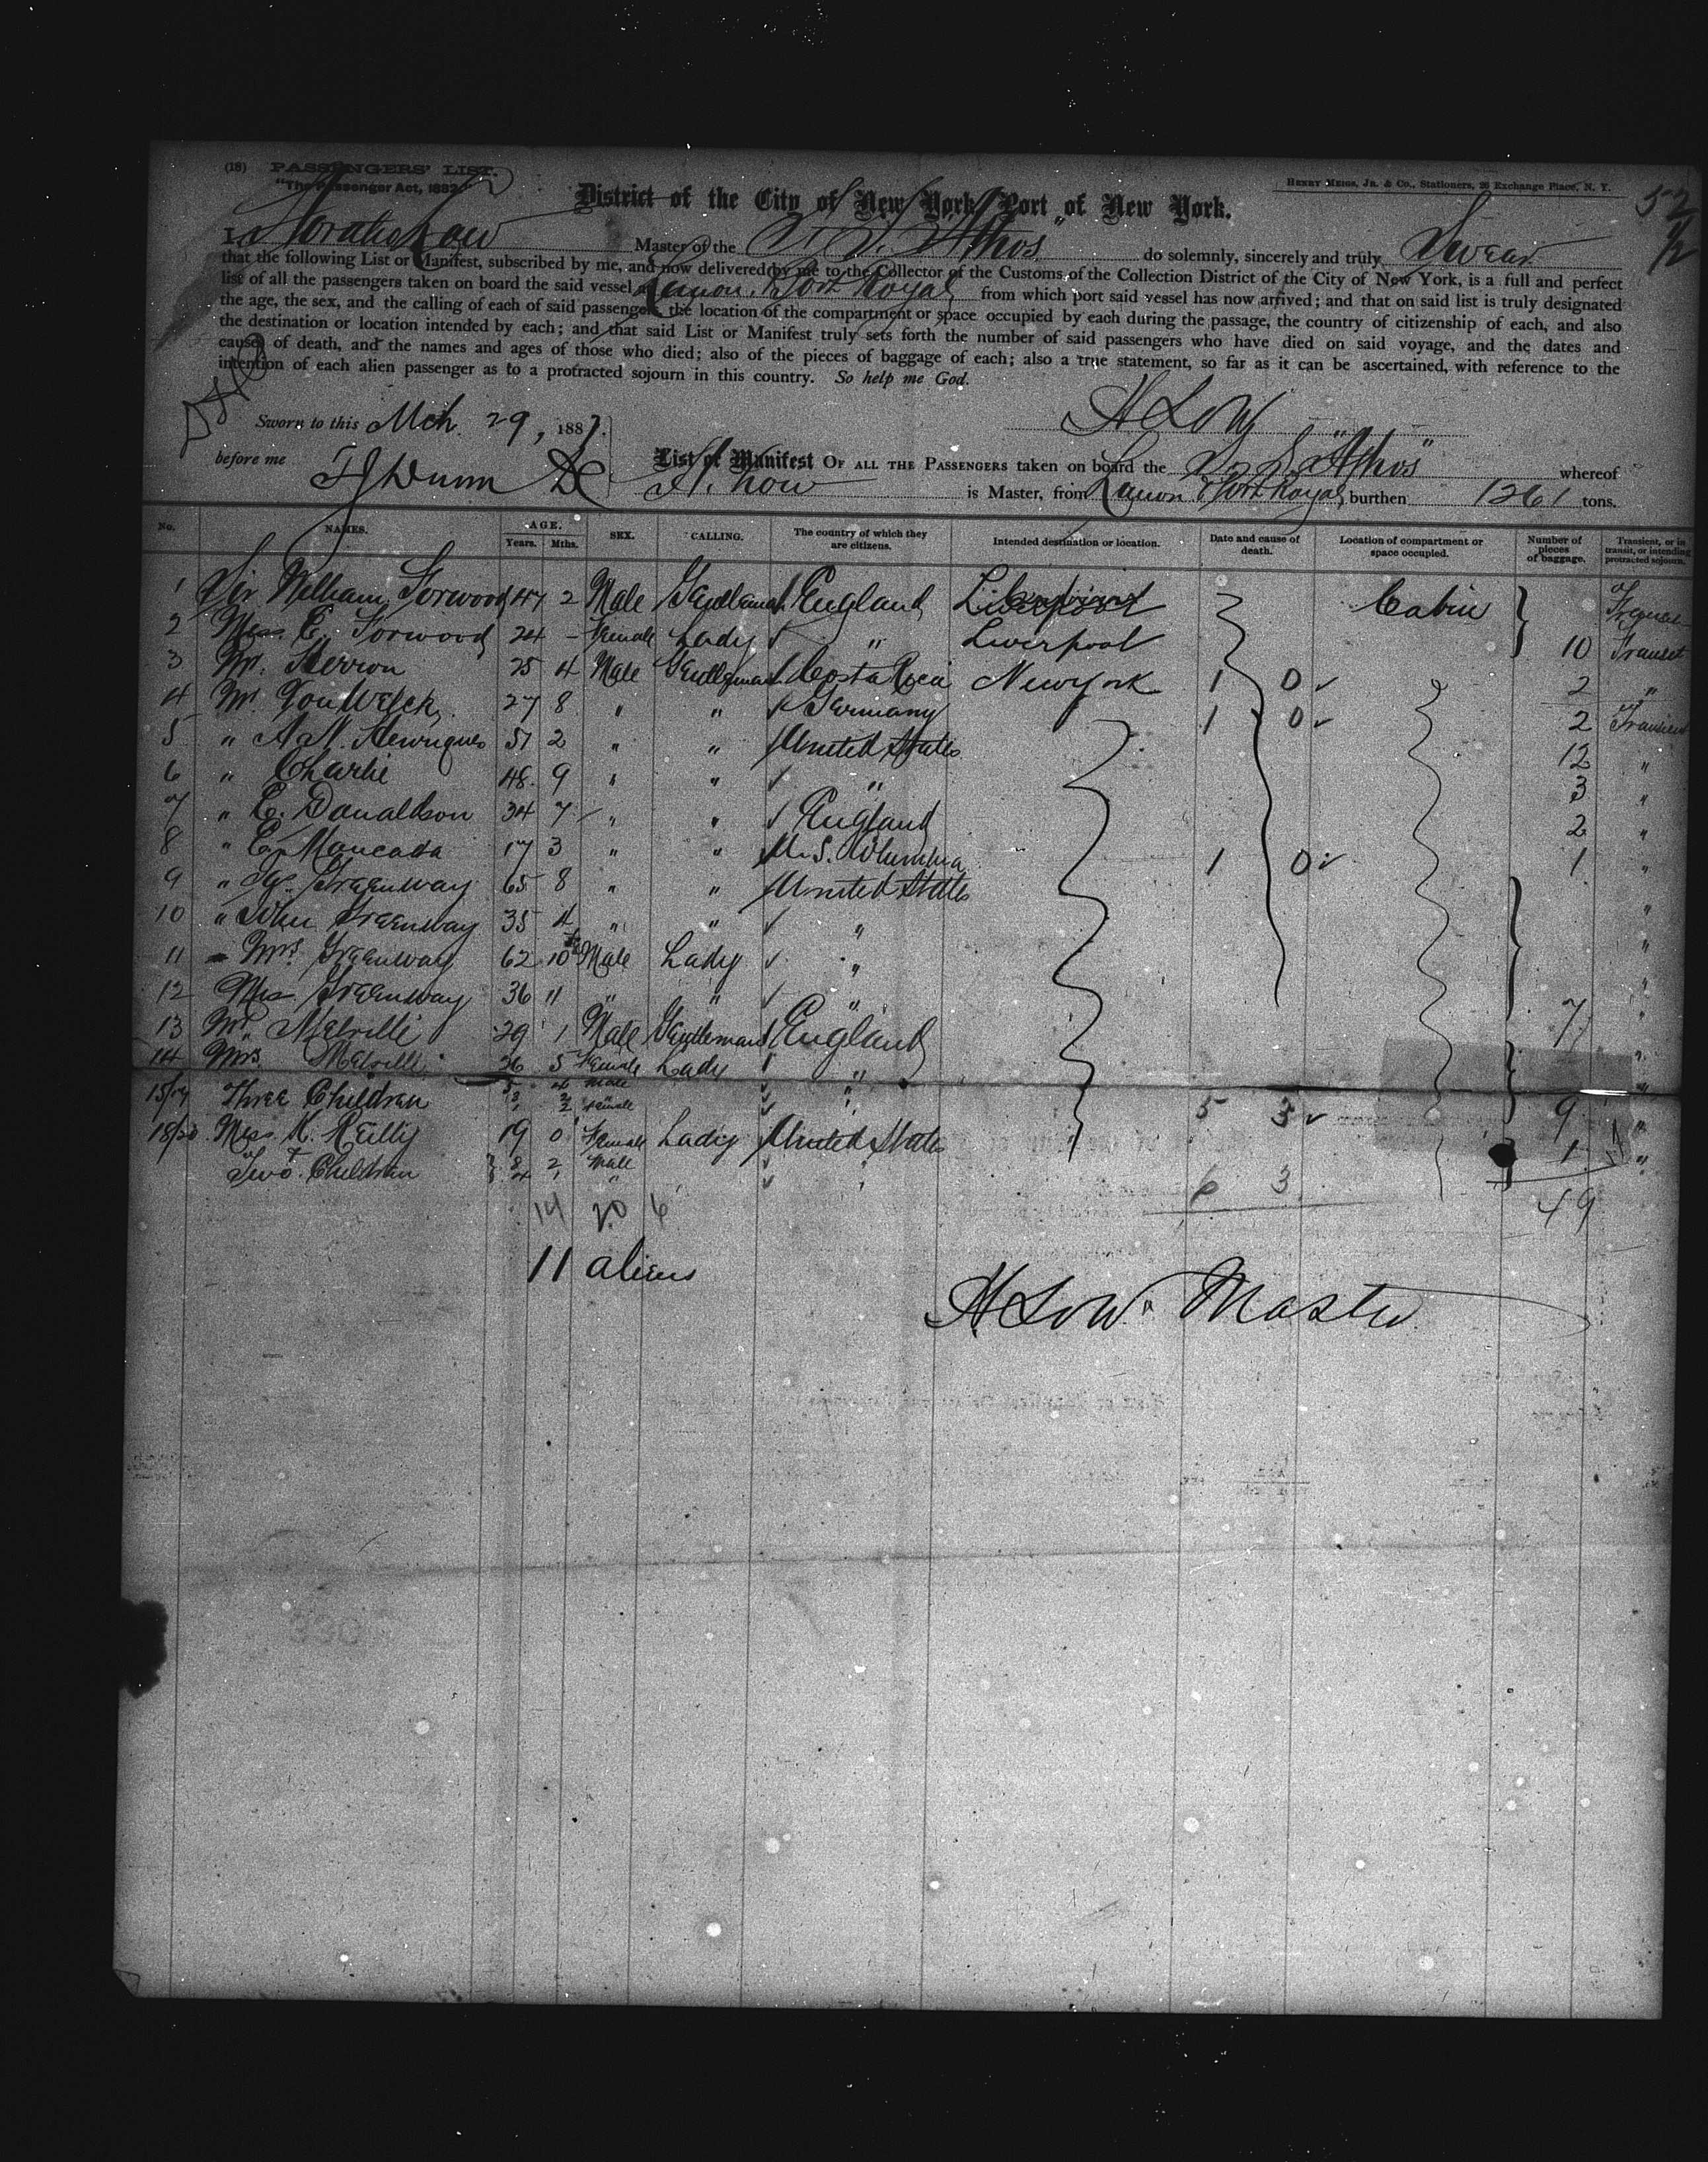 (18) PASSENGERS' LIST.
"The Passenger Act, 1882"
HENRY MEIGS, JR. & CO., Stationers, 26 Exchange Place, N. Y.
52
1/2
District of the City of New York, Port of New York.
I, Horatio Low Master of the S. S. "Athos" do solemnly, sincerely and truly Swear
that the following List or Manifest, subscribed by me, and now delivered by me to the Collector of the Customs of the Collection District of the City of New York, is a full and perfect
list of all the passengers taken on board the said vessel at Limon, Port Royal from which port said vessel has now arrived; and that on said list is truly designated
the age, the sex, and the calling of each of said passengers, the location of the compartment or space occupied by each during the passage, the country of citizenship of each, and also
the destination or location intended by each; and that said List or Manifest truly sets forth the number of said passengers who have died on said voyage, and the dates and
cause of death, and the names and ages of those who died; also of the pieces of baggage of each; also a true statement, so far as it can be ascertained, with reference to the
intention of each alien passenger as to a protracted sojourn in this country. So help me God.
Sworn to this Mch. 29, 1887. H Low
before me F J Dunn DC
List or Manifest OF ALL THE PASSENGERS taken on board the S. S. "Athos" whereof
H. Low is Master, from Limon & Port Royal, burthen 1261 tons.
No. NAMES. AGE. Years. Mths. SEX. CALLING. The country of which they are citizens. Intended destination or location. Date and cause of death. Location of compartment or space occupied. Number of pieces of baggage. Transient, or in transit, or intending protracted sojourn.
1 Sir William Forwood 47 2 Male Gentleman England Liverpool Cabin
2 Miss E. Forwood 24 - Female Lady " Liverpool 10 Transit
3 Mr. Herron 25 4 Male Gentleman Costa Rica New York 1 0 2 "
4 Mr. 27 8 " " Germany 1 0 2 Transient
5 " A. N. Henriques 51 2 " " United States 12 "
6 " Charlie 48 9 " " " 3 "
7 " E. Donaldson 34 7 " " England 2 "
8 " E. Moncada 17 3 " " U. S. Columbia 1 0 1 "
9 " Greenway 65 8 " " United States "
10 " John Greenway 35 4 " " " "
11 " Mrs. Greenway 62 10 FeMale Lady " "
12 Miss Greenway 36 11 " " " 7 "
13 Mr. Melville 29 1 Male Gentleman England "
14 Mrs. Melville 36 5 Female Lady " "
15/17 Three Children 5 4 Male " 5 3 9 "
Female
18/20 Miss K. Reilly 19 0 Female Lady United States 1 "
Two Children 8 2 Male "
4 1 " 6 3
49
14 20 6
11 aliens
H Low Master
330